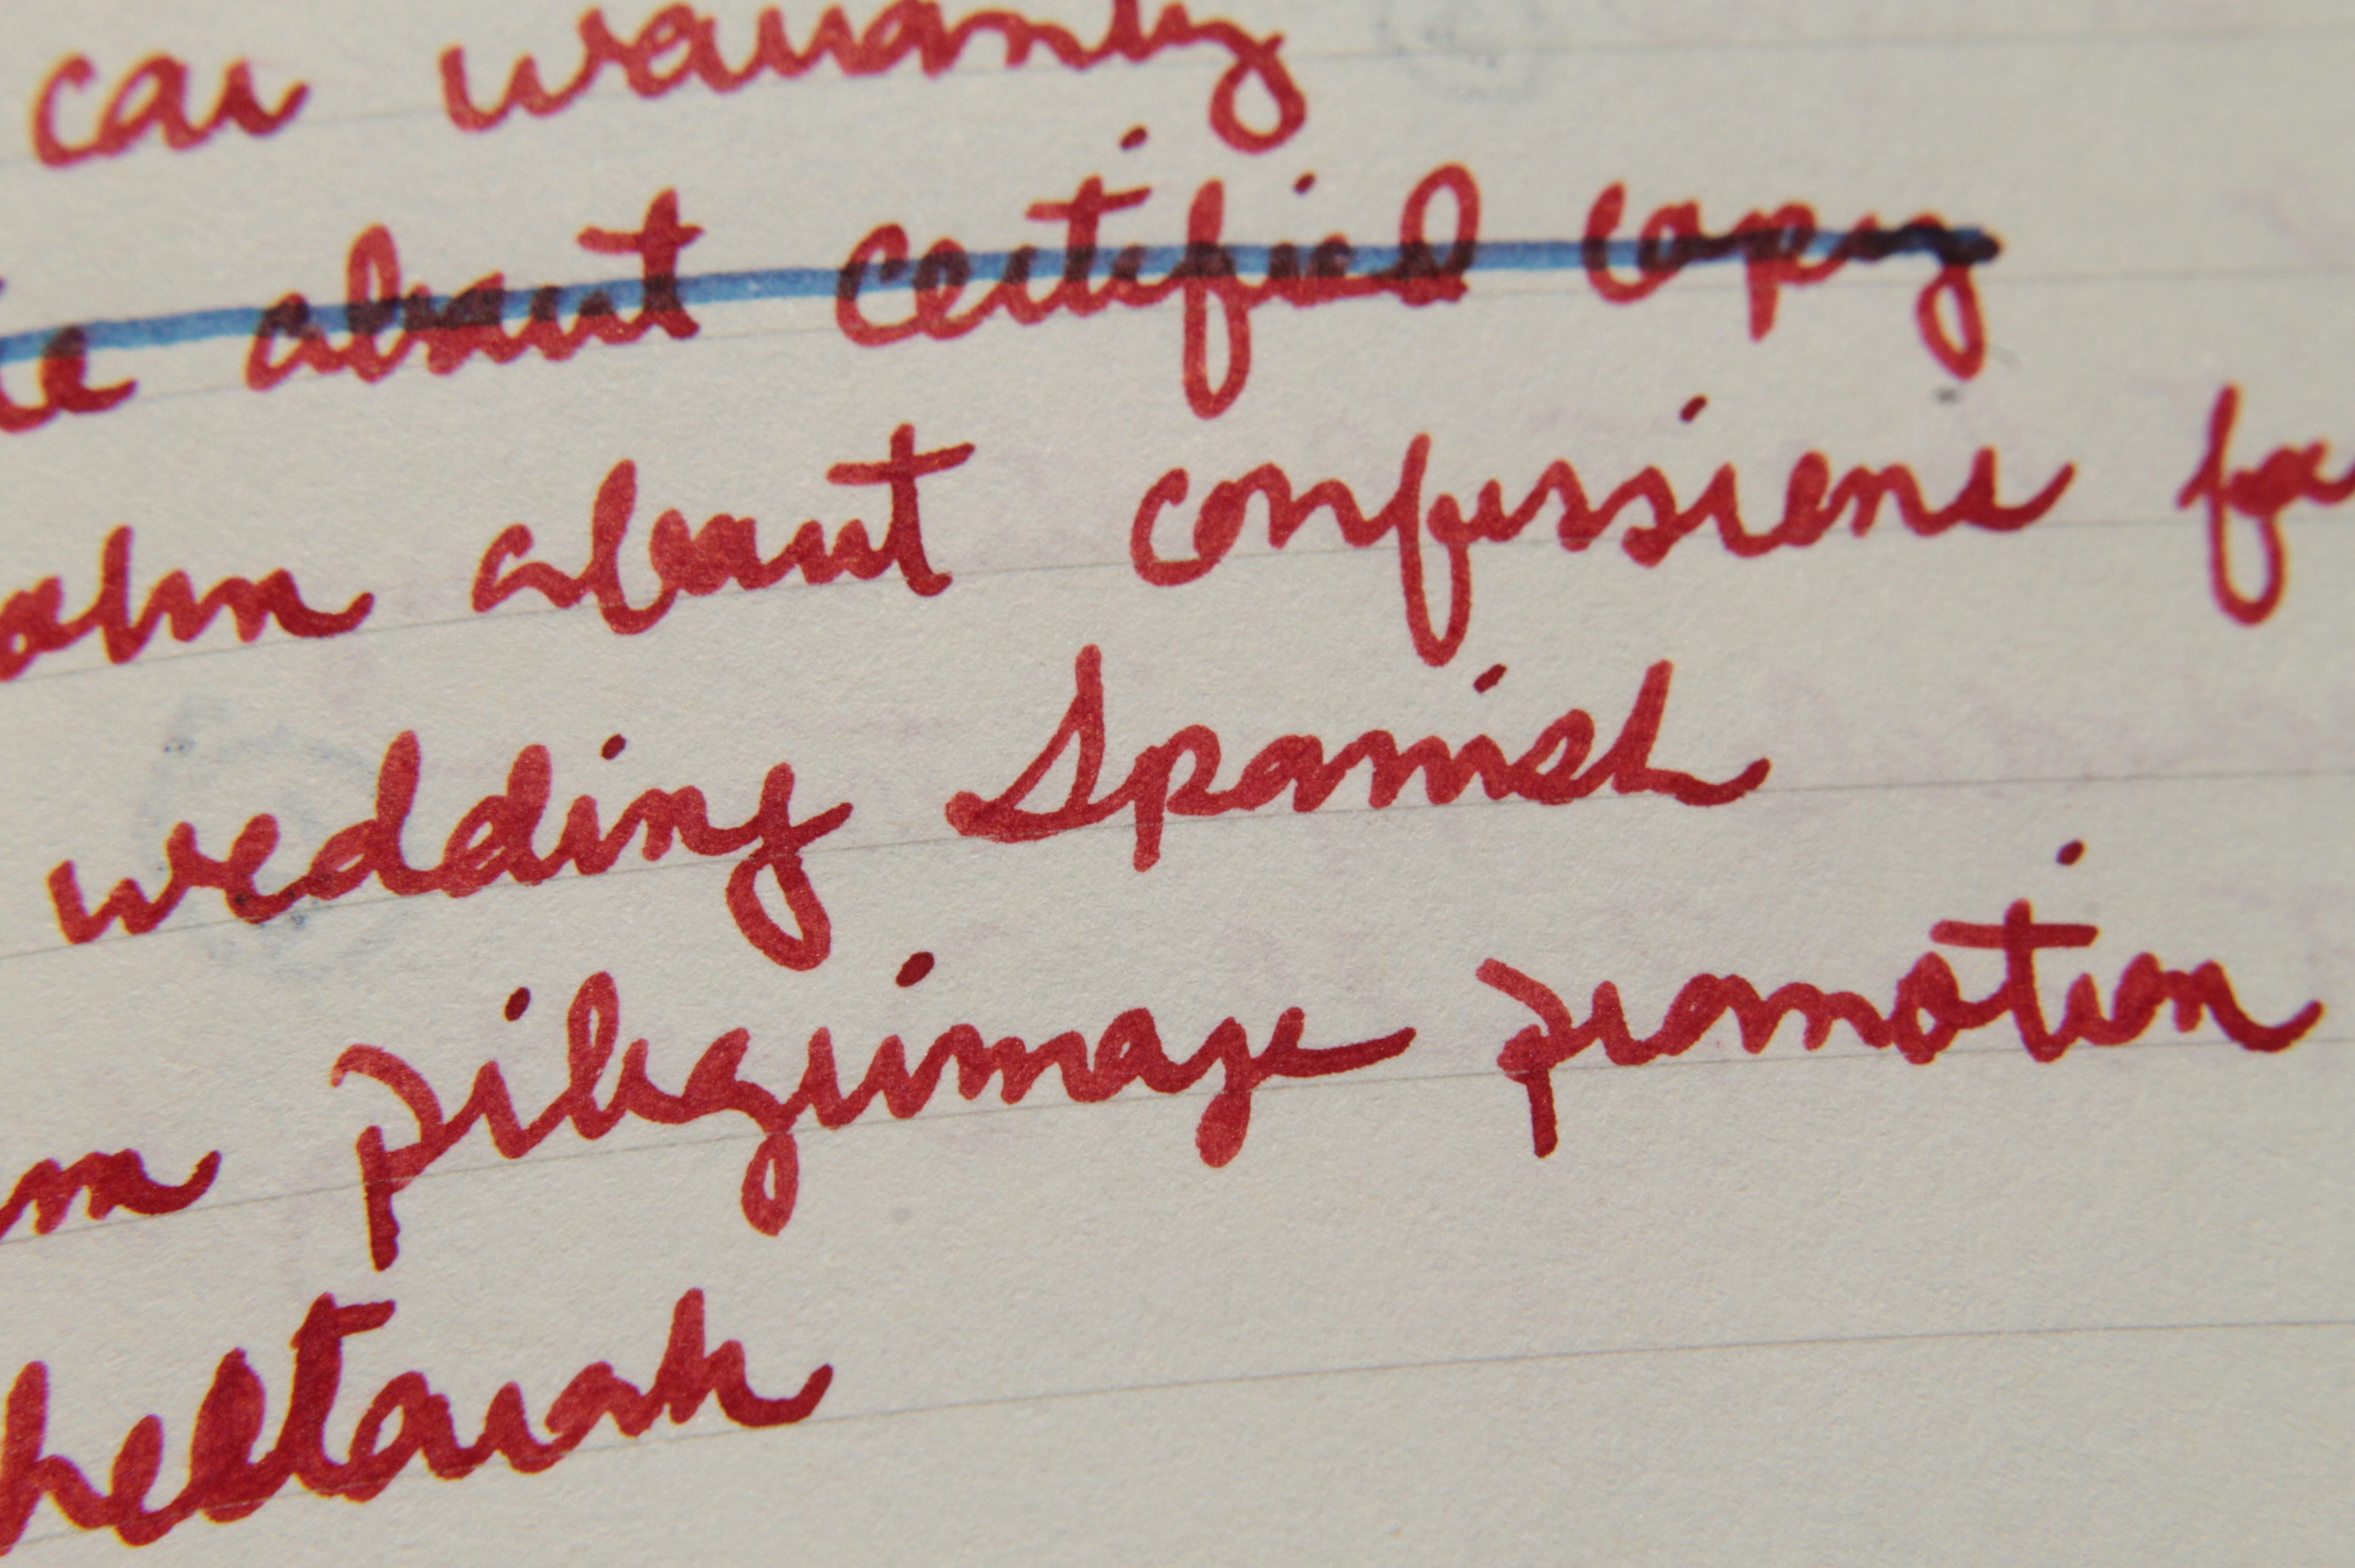 car warranty
about certified copy
about confessions for
wedding Spanish
pilgrimage promotion